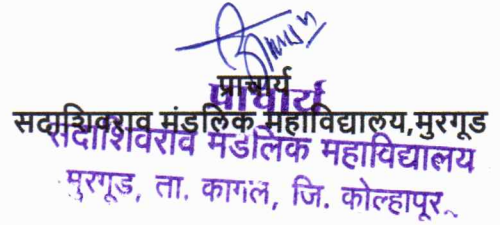 प्राचार्य
प्राचार्य
सदाशिवराव मंडलिक महाविद्यालय,मुरगूड
सदाशिवराव मंडलिक महाविद्यालय
मुरगूड, ता. कागल, जि. कोल्हापूर.